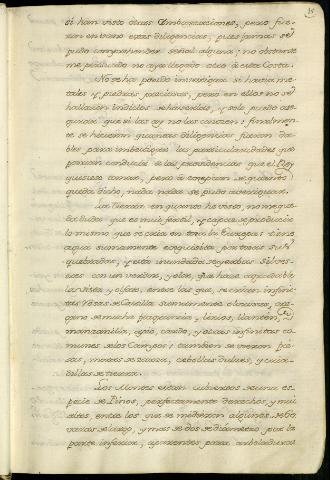 si han visto otras Embarcaciones, pero fue-
ron en vano estas diligencias, pues jamas se
pudo comprehender señal alguna: no obstante
me persuado no aya llegado otro á esta Costa.
No se ha podido investigar si hai minas
tales y piedras preciosas, pero en ellos no se
hallaron indicios de haverlas, y solo puedo ase-
gurar que si las ay no las conocen: finalmen-
te se hicieron quantas diligencias fueron da-
bles para imbestigar las particularidades que
podian conducir á las providencias que el Rey
quisiera tomar, pero á excepcion de quanto
queda dicho, nada nada se pudo averiguar.
La tierra en quanto he visto, no me que-
da duda que es mui fertil, y capaz de producir
lo mismo que se cria en toda la Europa: tiene
agua sumamente exquisita por todas sus
quebradas, y esta inundada de yerbas silves-
tres con un verdor, y olor, que hace agradable
la vista y olfato, entre las que, se crian infini-
tas Rosas de Castilla sumamente olorosas,
de mucha fragancia, y lirios, llanten,
manzanilla, apio, cardo, y otras infinitas co-
munes a los Campos; tambien se vieron fre-
sas, moras de zarza, cebollas dulces, y cria-
dillas de tierra.
Los Montes estan cubiertos de una es-
pecie de Pinos, perfectamente derechos y mui
altos, entre los que se midieron algunos de 60,
varas de largo, y mas de dos de diametro por la
parte inferior, aparentes para arboladuras